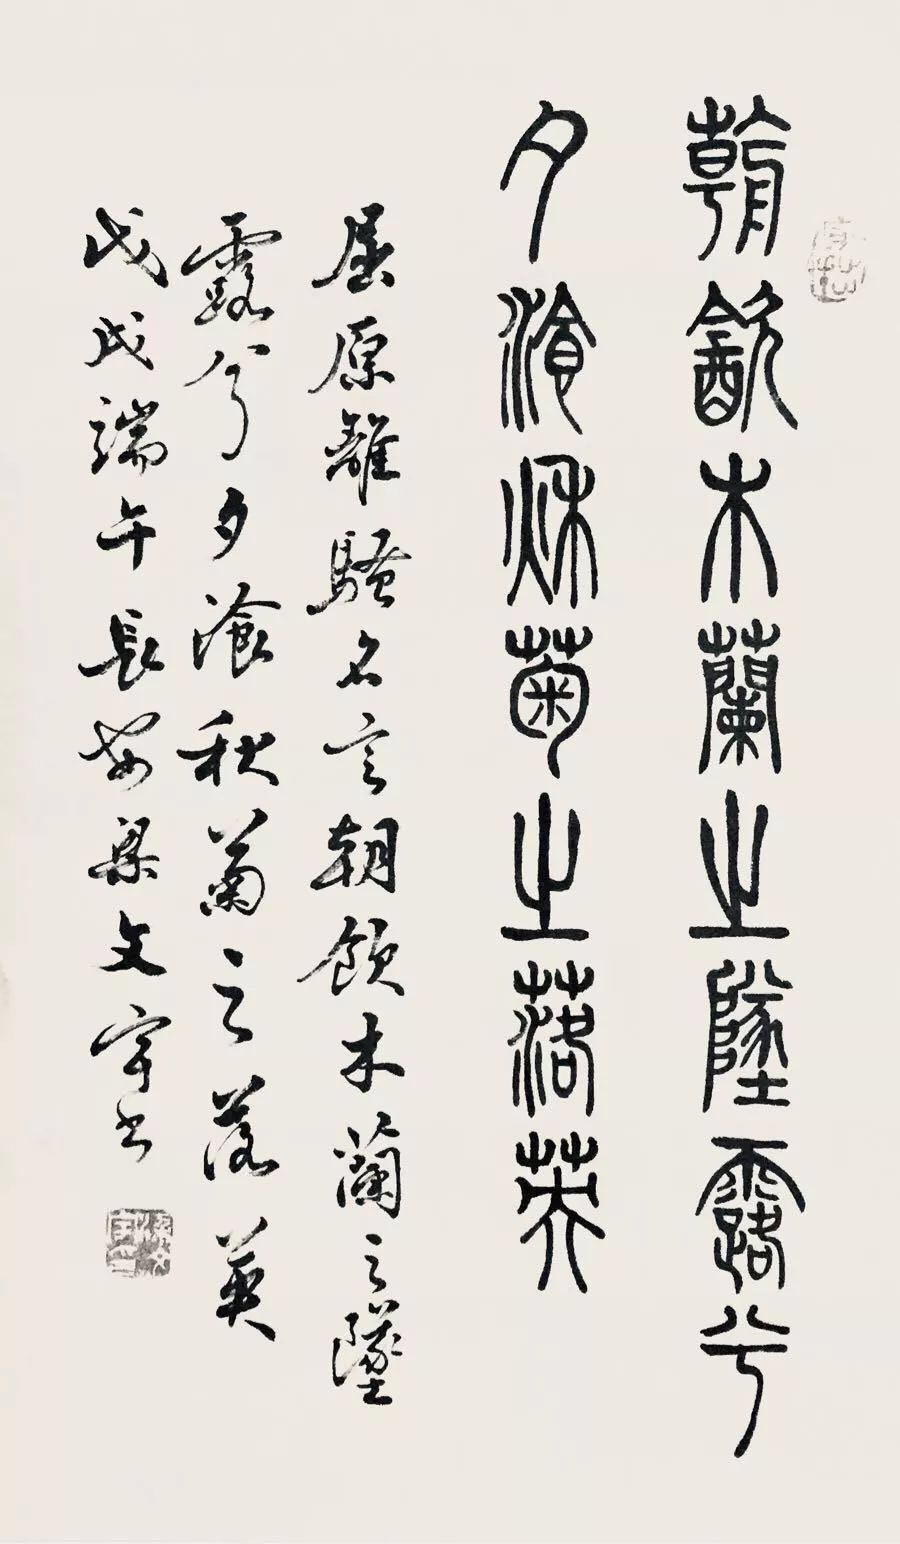 朝飲木蘭之墜露兮
夕湌秋菊之落英
屈原離騷名言朝飲木蘭之墜
露兮夕飡秋菊之落英
戊戌端午長安梁文宇书